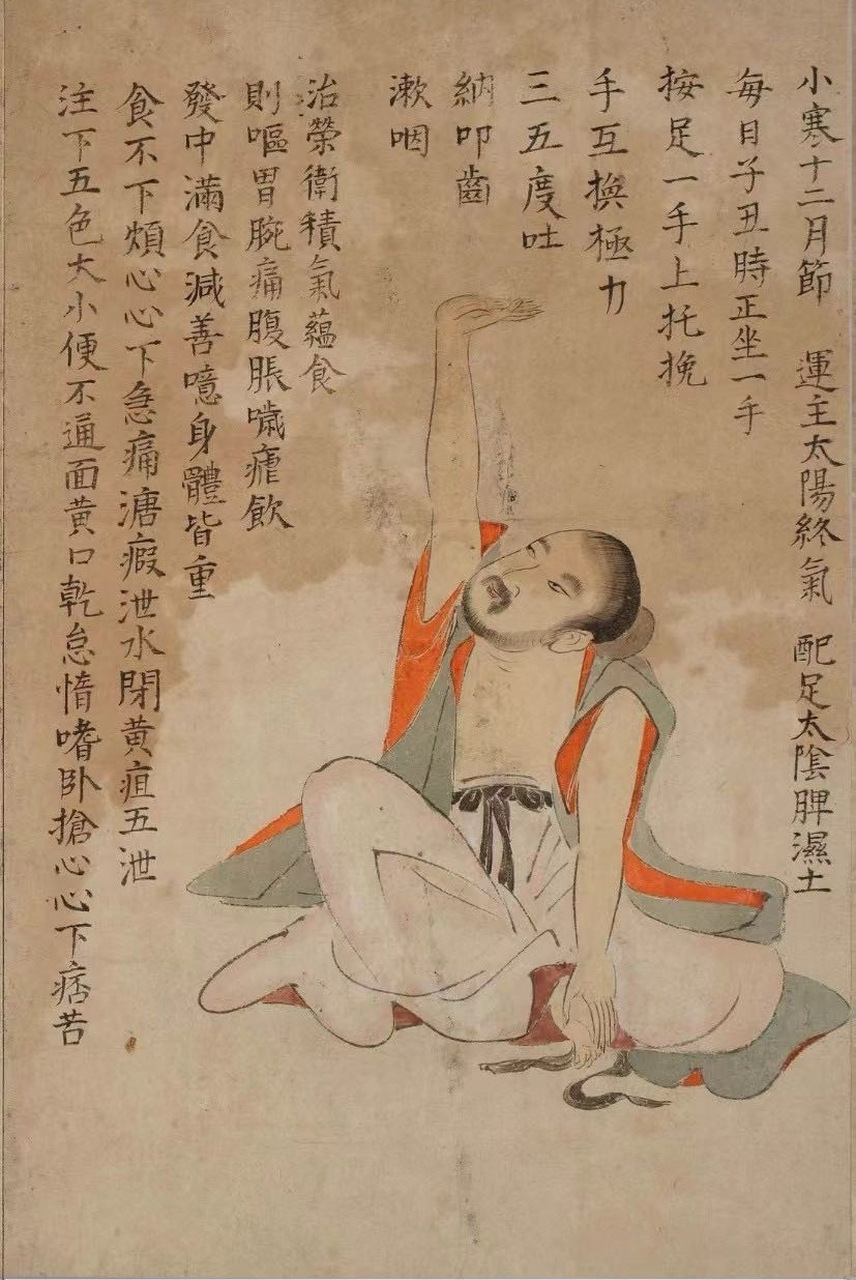 小寒十二月節 運主太陽終氣 配足太陰脾濕土
每日子丑時正坐一手
按足一手上托挽
手互換極力
三五度吐
納叩齒
漱咽
治榮衛積氣蘊食
則嘔胃脘痛腹脹噦瘧飲
發中滿食減善噫身體皆重
食不下煩心心下急痛溏瘕泄水閉黄疸五泄
注下五色大小便不通面黄口乾怠惰嗜卧搶心心下痞苦